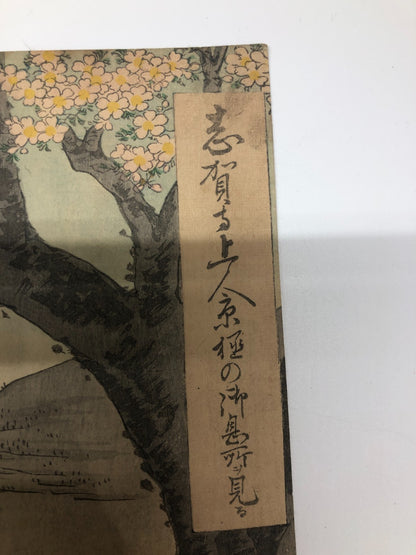 志賀寺上人京極の御息所ヲ見る